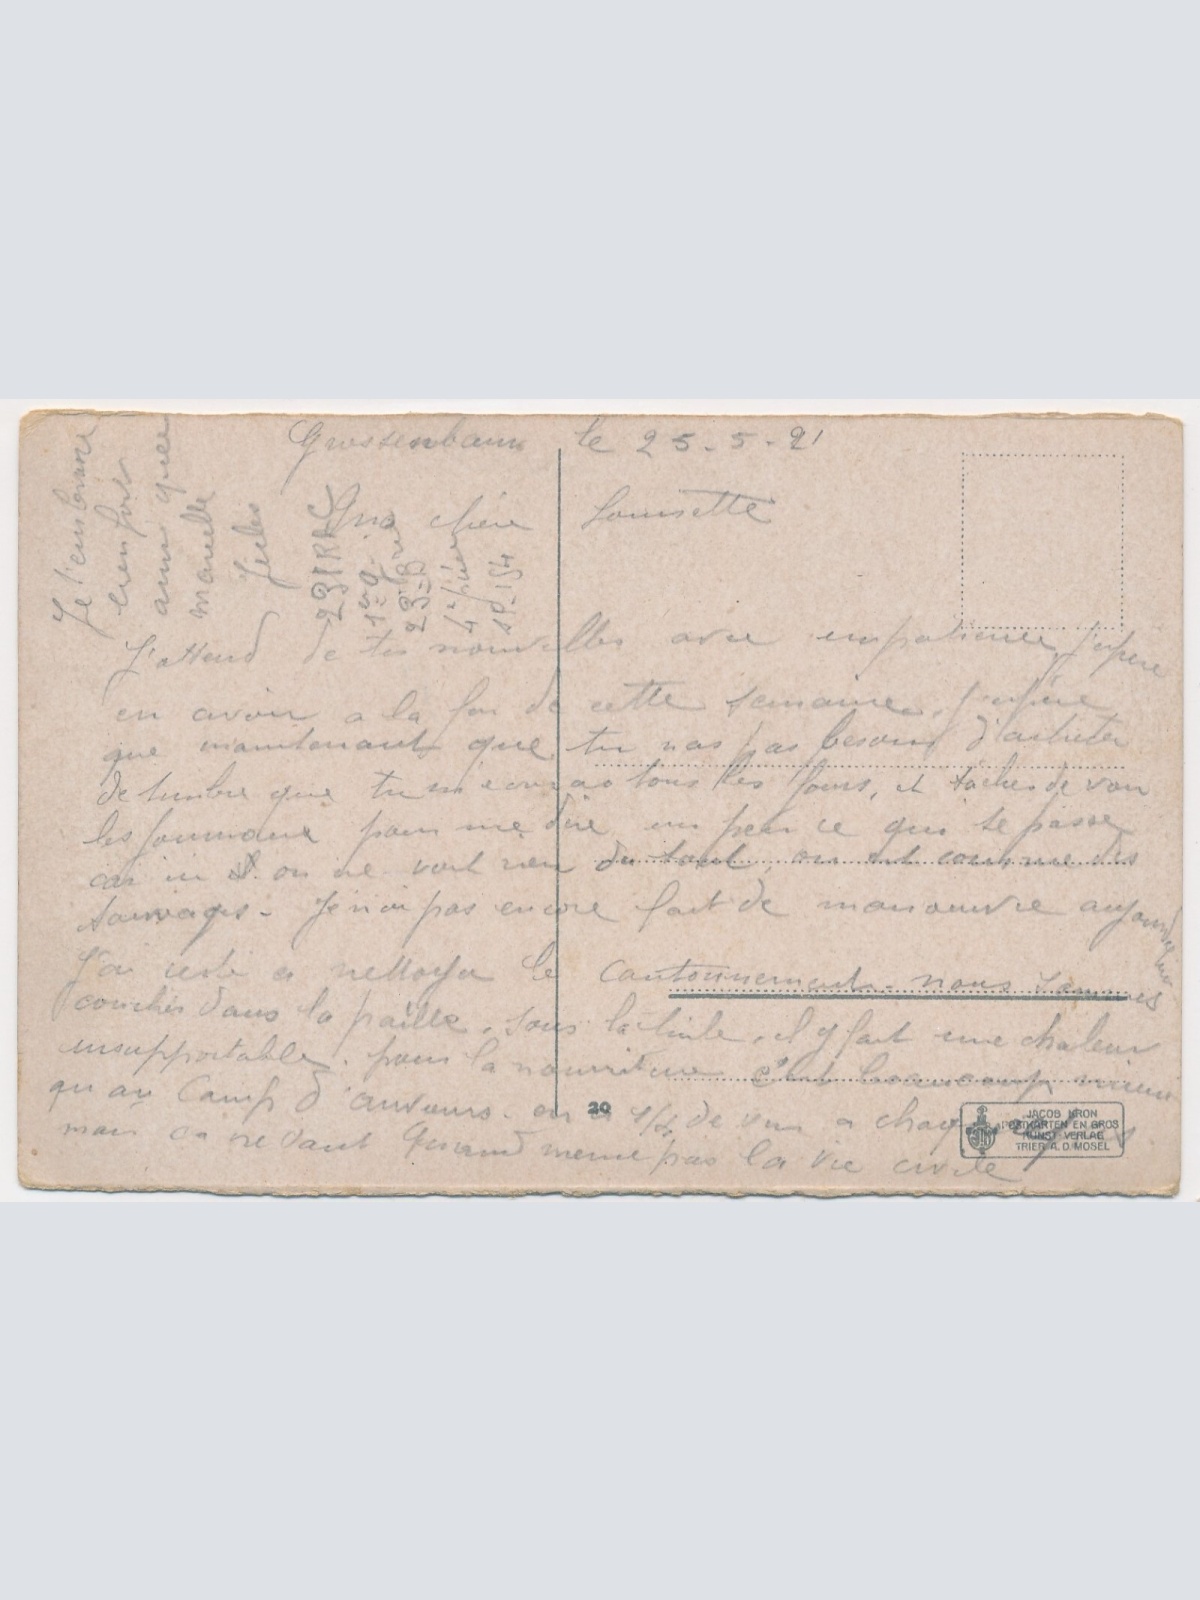 Grossenbaum le 25-5-21
Ma chère Louisette
J'attend de tes nouvelles avec impatience, j'espère
en avoir a la fin de cette semaine, j'espère
que maintenant que tu nas pas besoin d'acheter
de timbre que tu m'écriras tous les jours, et tâches de voir
les journaux pour me dire un peu ce qui se passe
car ici on ne voit rien du tout, on est comme des
sauvages. Je n'ai pas encore fait de manoeuvre aujourd'hui
J'ai resté a nettoyer le cantonnement. nous sommes
couchés dans la paille, sous la tente, il y fait une chaleur
insupportable. pour la nourriture c'est beaucoup mieux
qu'au Camp d'auvours. on a 1/4 de vin a chaque repas
mais ca ne vaut quand meme pas la vie civile
Je t'embrasse
bien fort
ainsi que
Marcelle
Jules
23
1er
23
4e pièce
SP. 154
20
JACOB KRON
POSTKARTEN EN GROS
KUNST-VERLAG
TRIER A. D. MOSEL